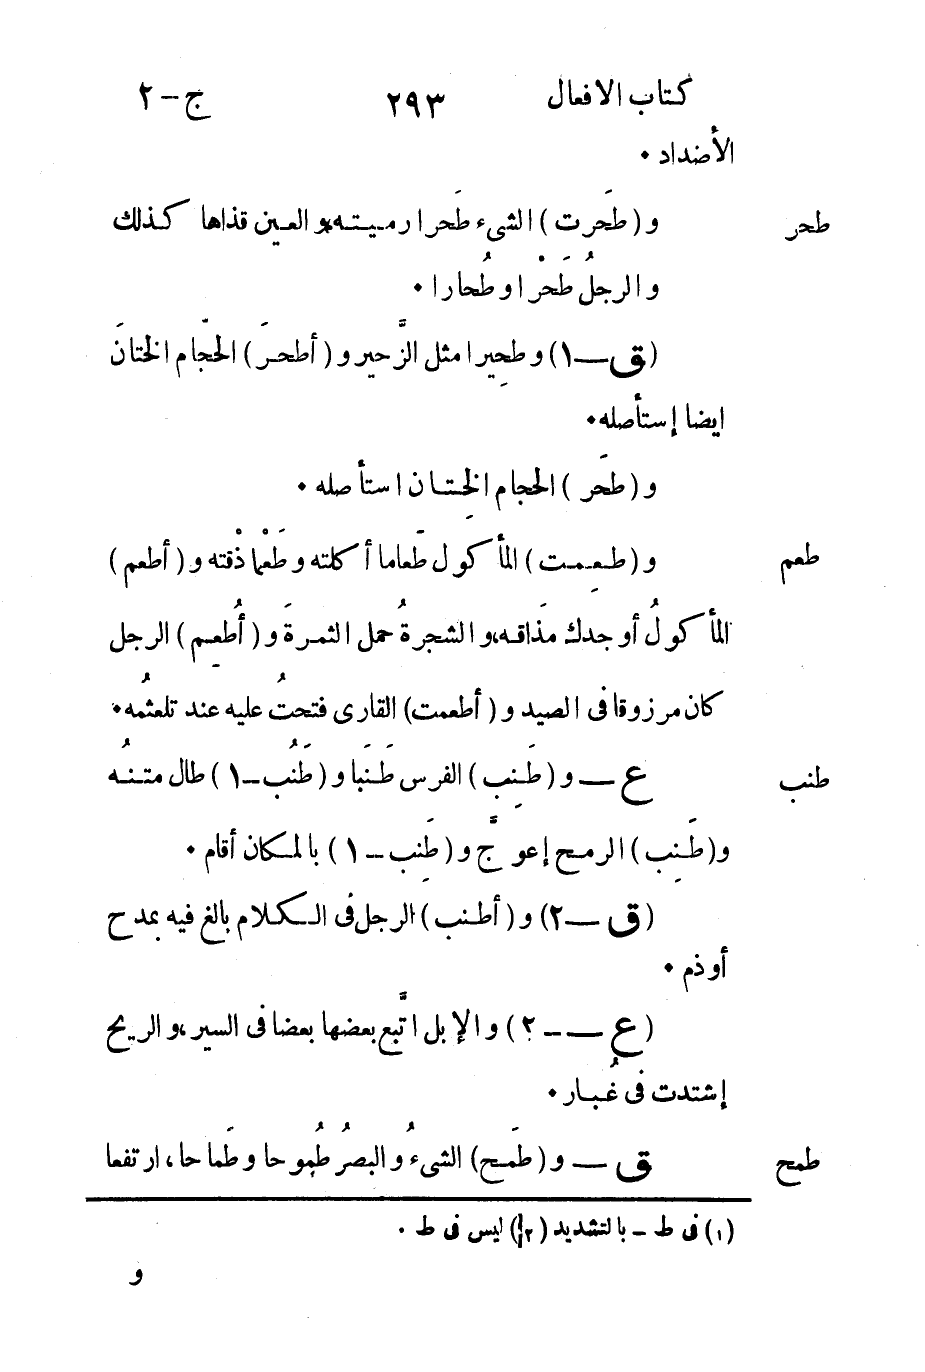 كتاب الافعال ٢٩٣ ج-٢
الأضداد ٠
طحر و (طَحَرت) الشىء طَحرا رميته، و العين قذاها كذلك
و الرجلُ طَحْرا و طُحارا ٠
(ق—١) و طحِيرا مثل الزَّحير و (أطحرَ) الحجّام الختانَ
ايضا إستأصله ٠
و (طحَر) الحجام الخِتان استأصله ٠
طعم و (طعِمت) المأكول طَعاما أكلته و طَعْما ذْقته و (أطعم)
المأكولُ أوجدك مَذاقه، و الشجرةُ حمل الثمرةَ و (أُطعِم) الرجل
كان مرزوقا فى الصيد و (أطعمت) القارى فتحتُ عليه عند تلعثُمه ٠
طنب ع — و (طَنِب) الفرس طَنَبا و (طَنُب-١) طال متنُه
و(طَنِب) الرمح إعوجَّ و (طَنِب-١) بالمكان أقام ٠
(ق—٢) و (أطنب) الرجل فى الكلام بالغ فيه بمدح
أو ذم ٠
(ع—-٢) و الإبل اتَّبع بعضها بعضا فى السير، و الريح
إشتدت فى غُبار ٠
طمح ق — و (طمَح) الشىءُ و البصرُ طُموحا و طَماحا، ارتفعا
(١) فى ط - بالتشديد (٢) ليس فى ط ٠
و